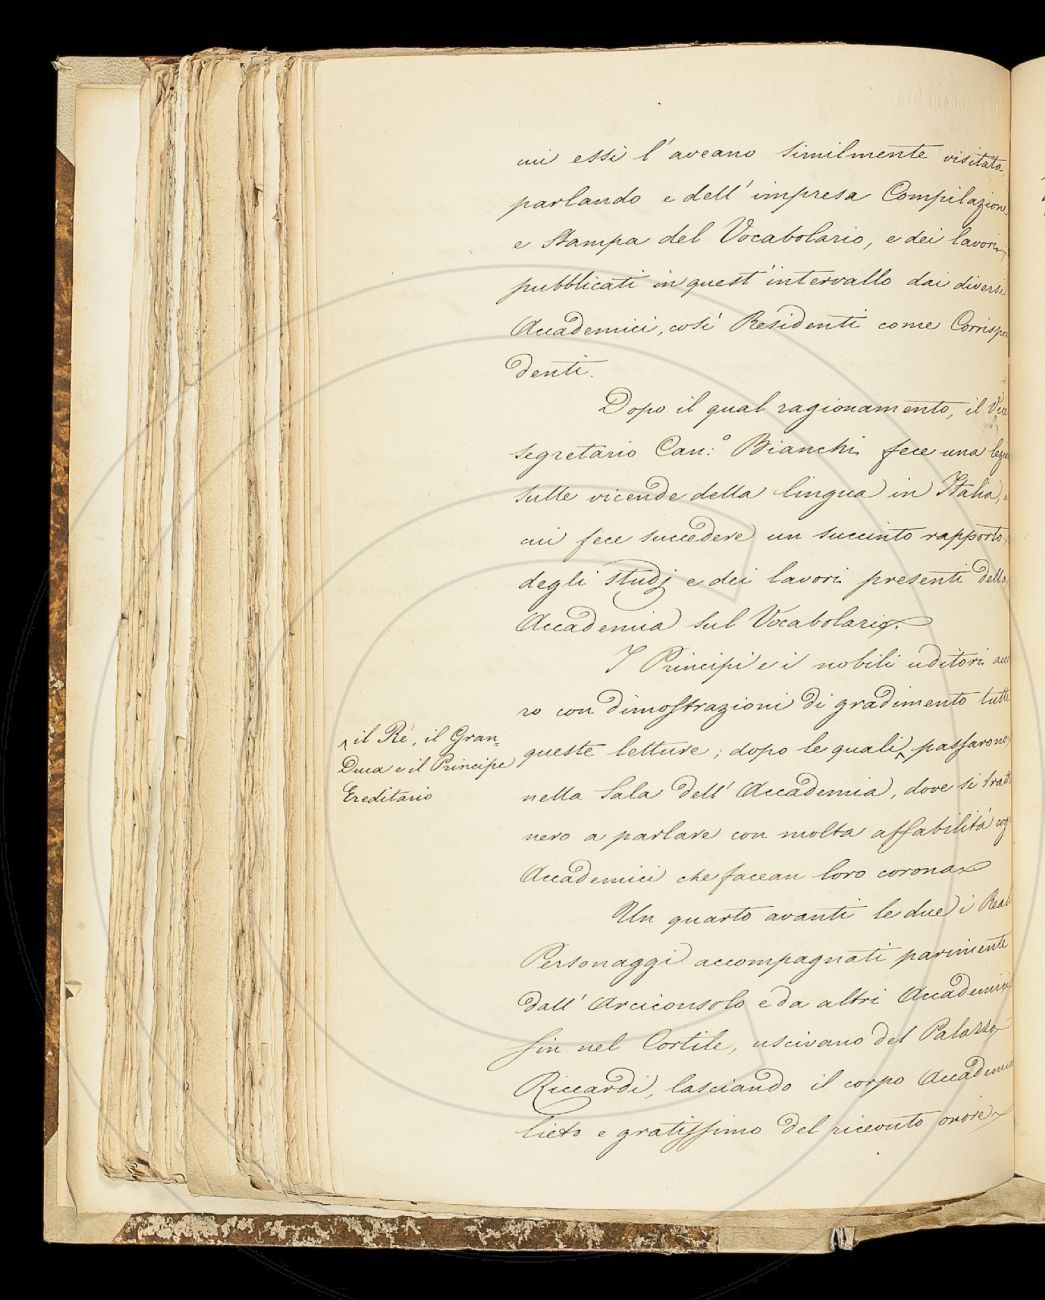 cui essi l'aveano similmente visitata
parlando e dell'impresa Compilazione
e Stampa del Vocabolario, e dei lavori
pubblicati in quest'intervallo dai diversi
Accademici, così Residenti come Corrispon
denti.
Dopo il qual ragionamento, il Vice
segretario Can.º Bianchi fece una
sulle vicende della lingua in Italia,
cui fece succedere un succinto rapporto
degli studj e dei lavori presenti della
Accademia sul Vocabolario.
I Principi e i nobili uditori
ro con dimostrazioni di gradimento tutte
queste letture; dopo le quali ^ passarono
^ il Ré, il Gran=
Duca e il Principe
Ereditario
nella Sala dell'Accademia, dove si tratt
nero a parlare con molta affabilità cog
Accademici che facean loro corona
Un quarto avanti le due i Real
Personaggi accompagnati parimente
dall'Arciconsolo e da altri Accademici
fin nel Cortile, uscivano del Palazzo
Riccardi, lasciando il corpo Accademico
lieto e gratissimo del ricevuto onore